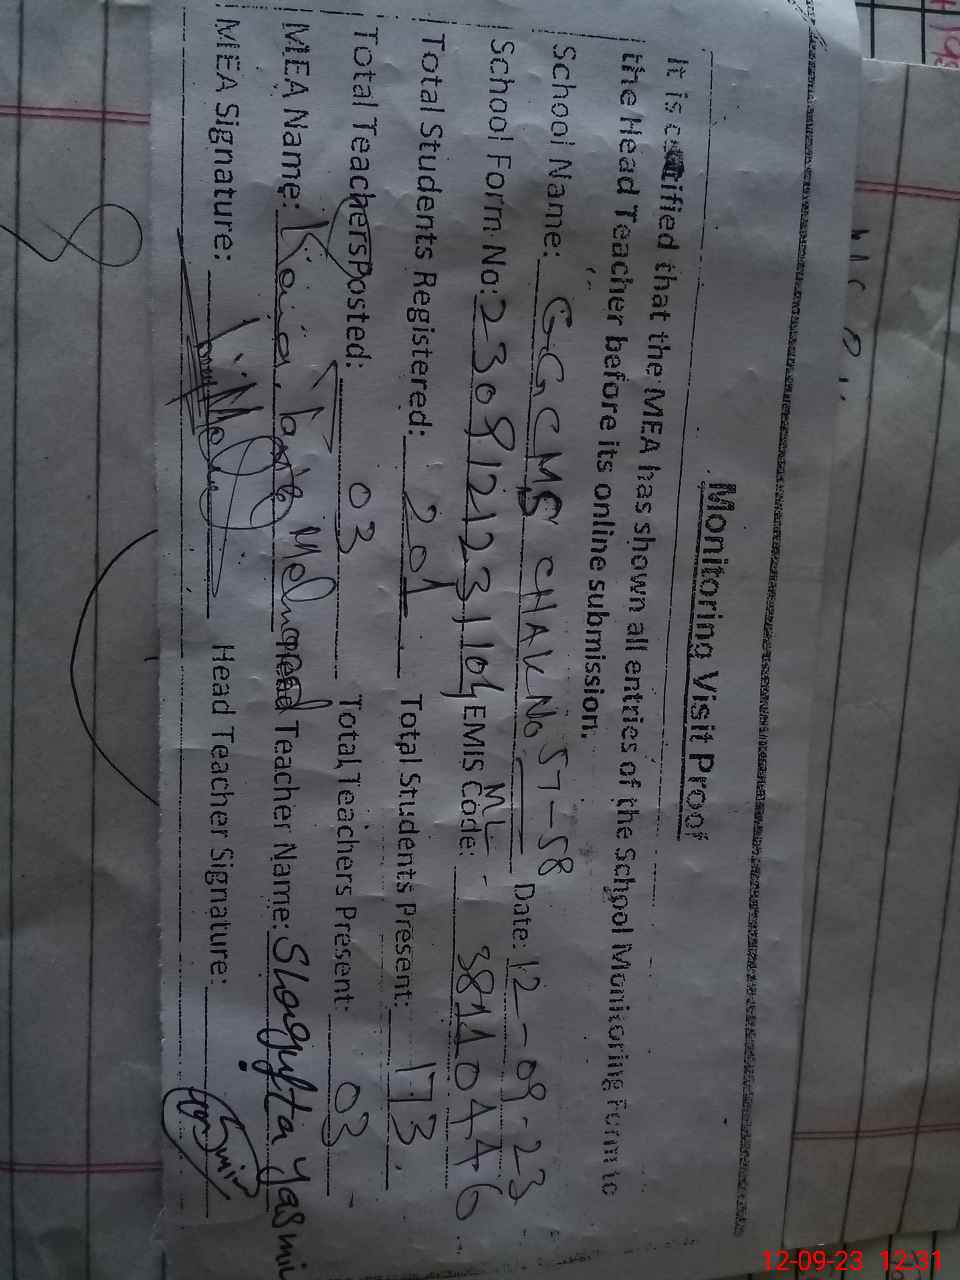 Monitoring Visit Proof
It is certified that the MEA has shown all entries of the School Monitoring Form to
the Head Teacher before its online submission.
School Name: GGCMS CHAK No 57-58 Date: 12-09-23
ML
School Form No: EMIS Code: 38110446
Total Students Registered: 201 Total Students Present: 173
Total Teachers Posted: 03 Total Teachers Present: 03
MEA Name: Head Teacher Name: Shagufta Yasmin
MEA Signature: Head Teacher Signature:
12-09-23 12:31